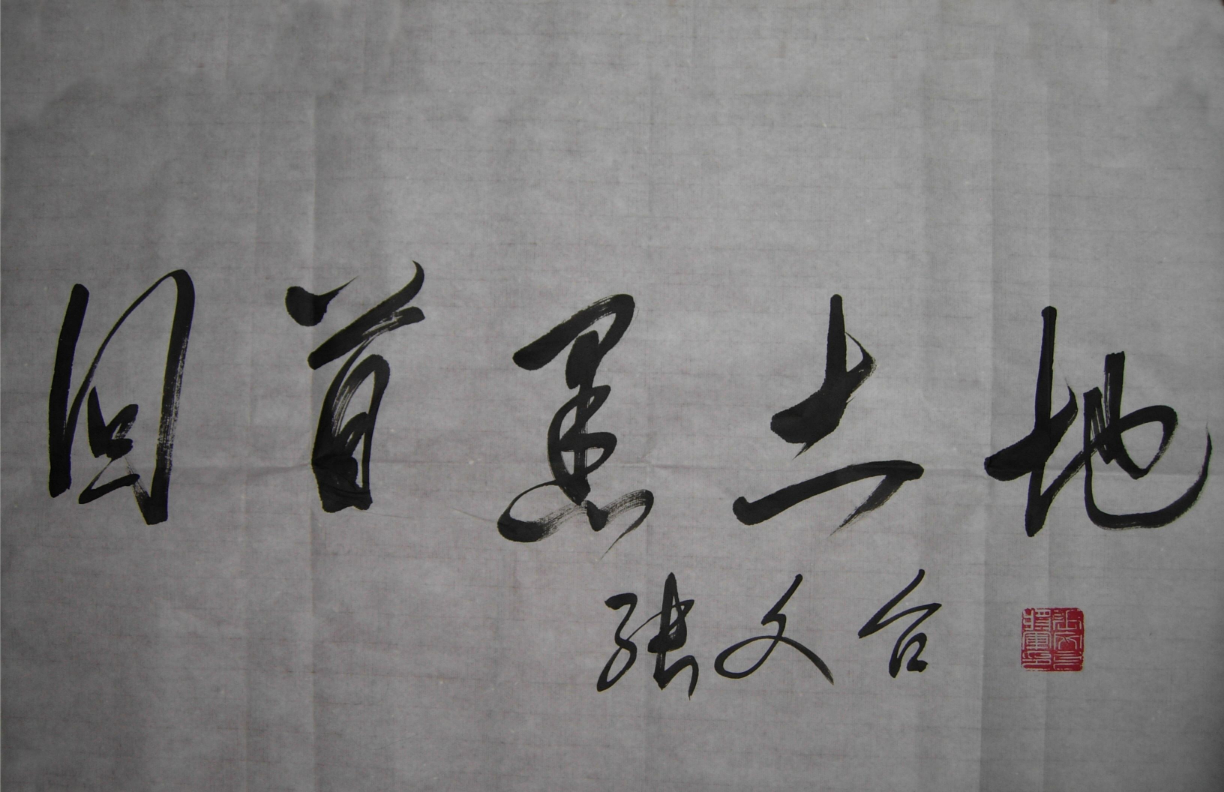 回首黑土地
张文台